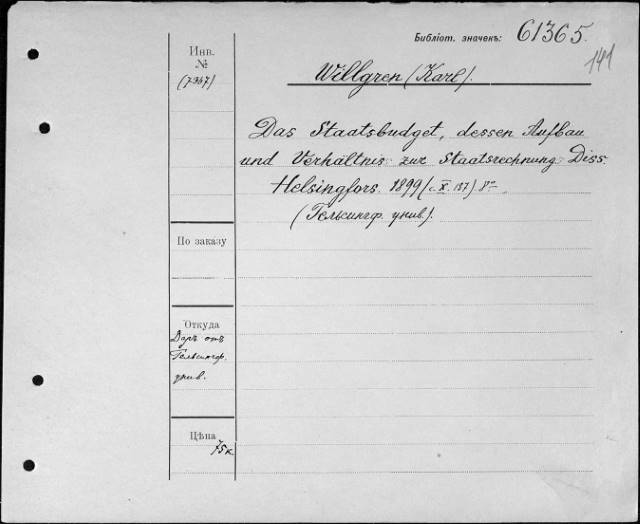 Библіот. значекъ: 61365.
141
Инв.
№
(7347)
Willgren (Karl).
Das Staatsbudget, dessen Aufbau
und Verhältnis zur Staatsrechnung. Diss.
Helsingfors. 1899 (c. X. 137) 8º
(Гельсингф. унив.).
По заказу
Откуда
Даръ отъ
Гельсингф.
унив.
Цѣна
75 к